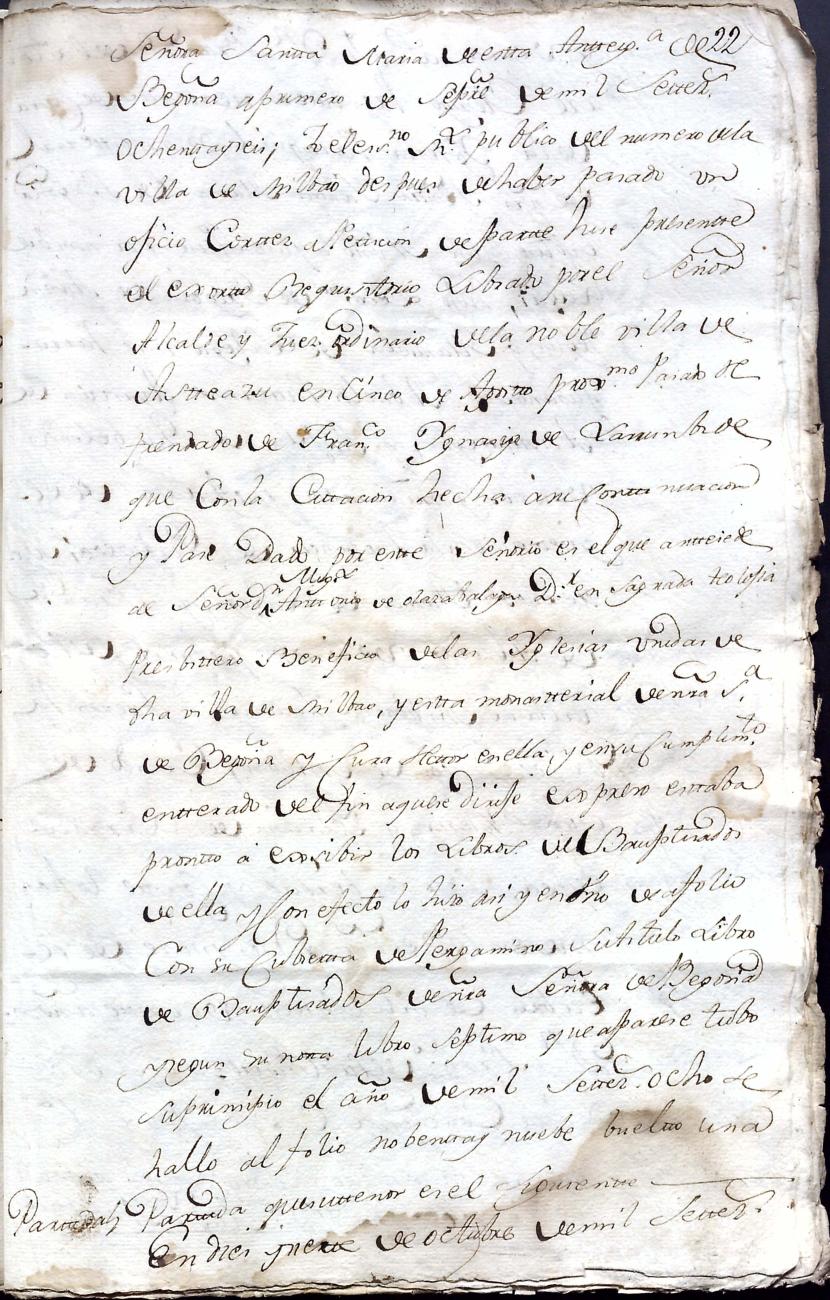 22
Señora Santta Maria de estta Antteyg.ª de
Begoña a primero de Sepre de mil Settez.s
Ochenttayseis; Yo el ess.no R.l publico del numero de la
villa de Milbao despues de haber pasado un
oficio Corttez a Peticion de partte hise presentte
el exortto Requisitorio Librado por el Señor
Alcalde y Juez ordinario de la noble villa de
Astteazu en Cinco de Agostto prox.mo Pasado
de Fran.co Ygnazio de Larrumbide
que Con la Cittacion hecha a su Conttinuacion
y Pase Dado por estte Señorio es el que anttecede
al Señor D.n Migu.l Anttonio de olazabalaga D.r en Sagrada teolosia
Presbittero Beneficio de las Yglesias Unidas de
dha villa de Milbao, y estta monastterial de nra S.ª
de Begoña y Cura Rettor en ella, y en su Cumplim.to
entterado del fin a que se dirije expreso esttaba
prontto a exsibir los Libros de Bauptisados
de ella y Con efecto lo hizo asi y en uno de afolio
Con su Cubiertta de Pergamino, su titulo Libro
de Bauptisados de nra Señora de Begoña
y segun su notta libro septimo que aparese tubo
su prinsipio el año de mil Settez.s ocho se
hallo al folio nobenttay nuebe bueltto una
Partida Parttida que su ttenor es el siguientte
En dies y siette de octubre de mil Settez.s